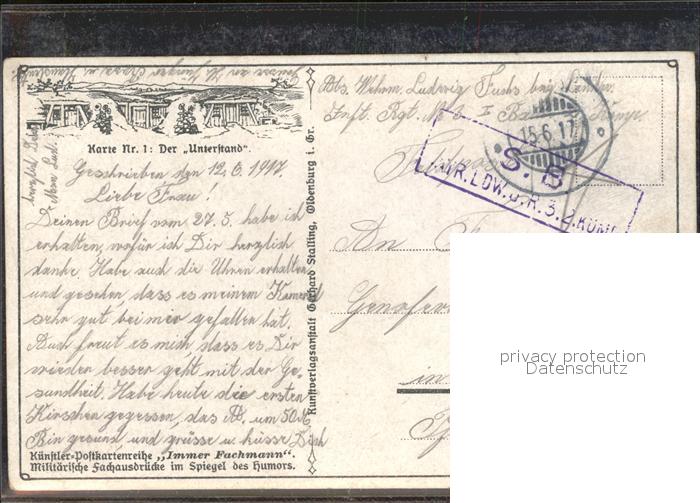 Karte Nr. 1: Der „Unterstand“.
Geschrieben den 12. 6. 1917.
Liebe Frau!
Deinen Brief vom 27. 5. habe ich
erhalten, wofür ich Dir herzlich
danke. Habe auch die Uhren erhalten
und gesehen, dass es meinem
sehr gut bei mir gefallen hat.
Auch freut es mich, dass es Dir
wieder besser geht mit der Ge-
sundheit. Habe heute die ersten
Kirschen gegessen, das um 50
Bin gesund, und grüsse u. küsse Dich
Künstler-Postkartenreihe „Immer Fachmann“.
Militärische Fachausdrücke im Spiegel des Humors.
Kunstverlagsanstalt Gerhard Stalling, Oldenburg i. Gr.
Abs. Wehrm. Ludwig Fuchs
Inft. Rgt. I
15.6.17
S. B.
LDW. J. R. 3. 2. KOMP
An
in
privacy protection
Datenschutz